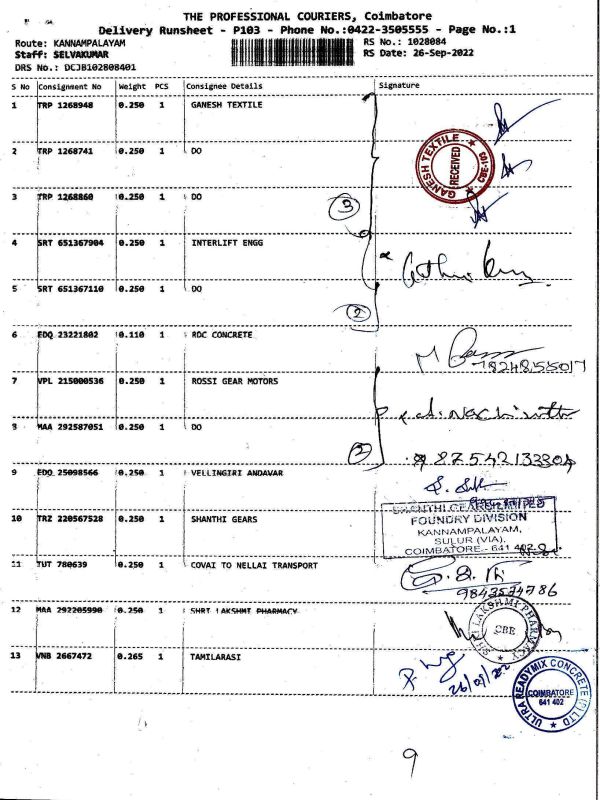 THE PROFESSIONAL COURIERS, Coimbatore
Delivery Runsheet - P103 - Phone No.:0422-3505555 - Page No.:1
Route: KANNAMPALAYAM RS No.: 1028084
Staff: SELVAKUMAR RS Date: 26-Sep-2022
DRS No.: DCJB102808401
S No Consignment No Weight PCS Consignee Details Signature
1 TRP 1268948 0.250 1 GANESH TEXTILE
GANESH TEXTILE RECEIVED CBE-103
2 TRP 1268741 0.250 1 DO
3 TRP 1268860 0.250 1 DO
3
4 SRT 651367904 0.250 1 INTERLIFT ENGG
5 SRT 651367110 0.250 1 DO
2
6 EDQ 23221802 0.110 1 RDC CONCRETE
7 VPL 215000536 0.250 1 ROSSI GEAR MOTORS
8 MAA 292587051 0.250 1 DO
2
9 EDQ 25098566 0.250 1 VELLINGIRI ANDAVAR
10 TRZ 220567528 0.250 1 SHANTHI GEARS
FOUNDRY DIVISION
KANNAMPALAYAM,
SULUR (VIA),
COIMBATORE - 641 402
11 TUT 780639 0.250 1 COVAI TO NELLAI TRANSPORT
12 MAA 292205990 0.250 1 SHRI LAKSHMI PHARMACY
SHRI LAKSHMI PHARMACY CBE
13 VNB 2667472 0.265 1 TAMILARASI
26/09/22
ULTRA READYMIX CONCRETE (P) LTD
COIMBATORE
641 402
9